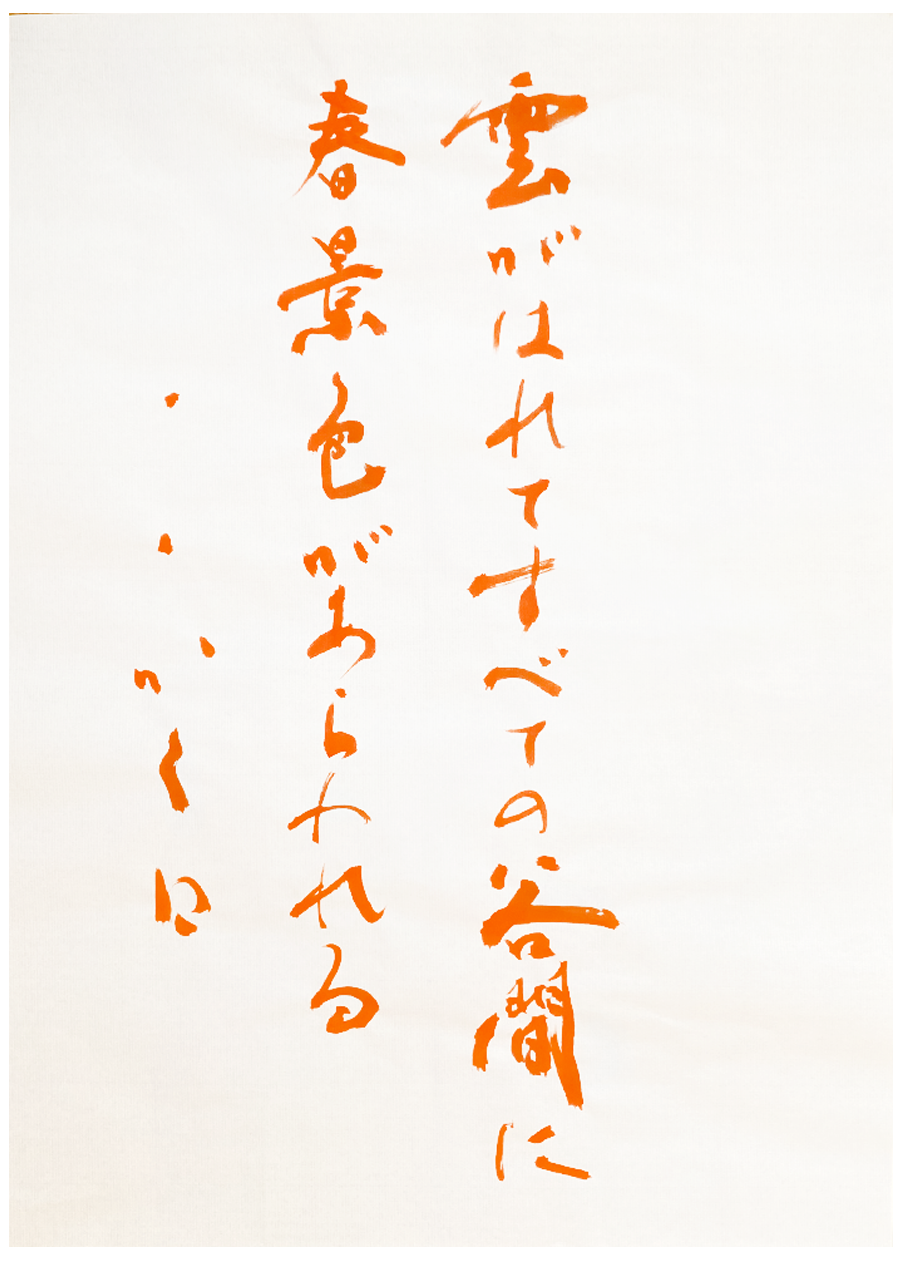 雲がはれてすべての谷間に
春景色があらわれる